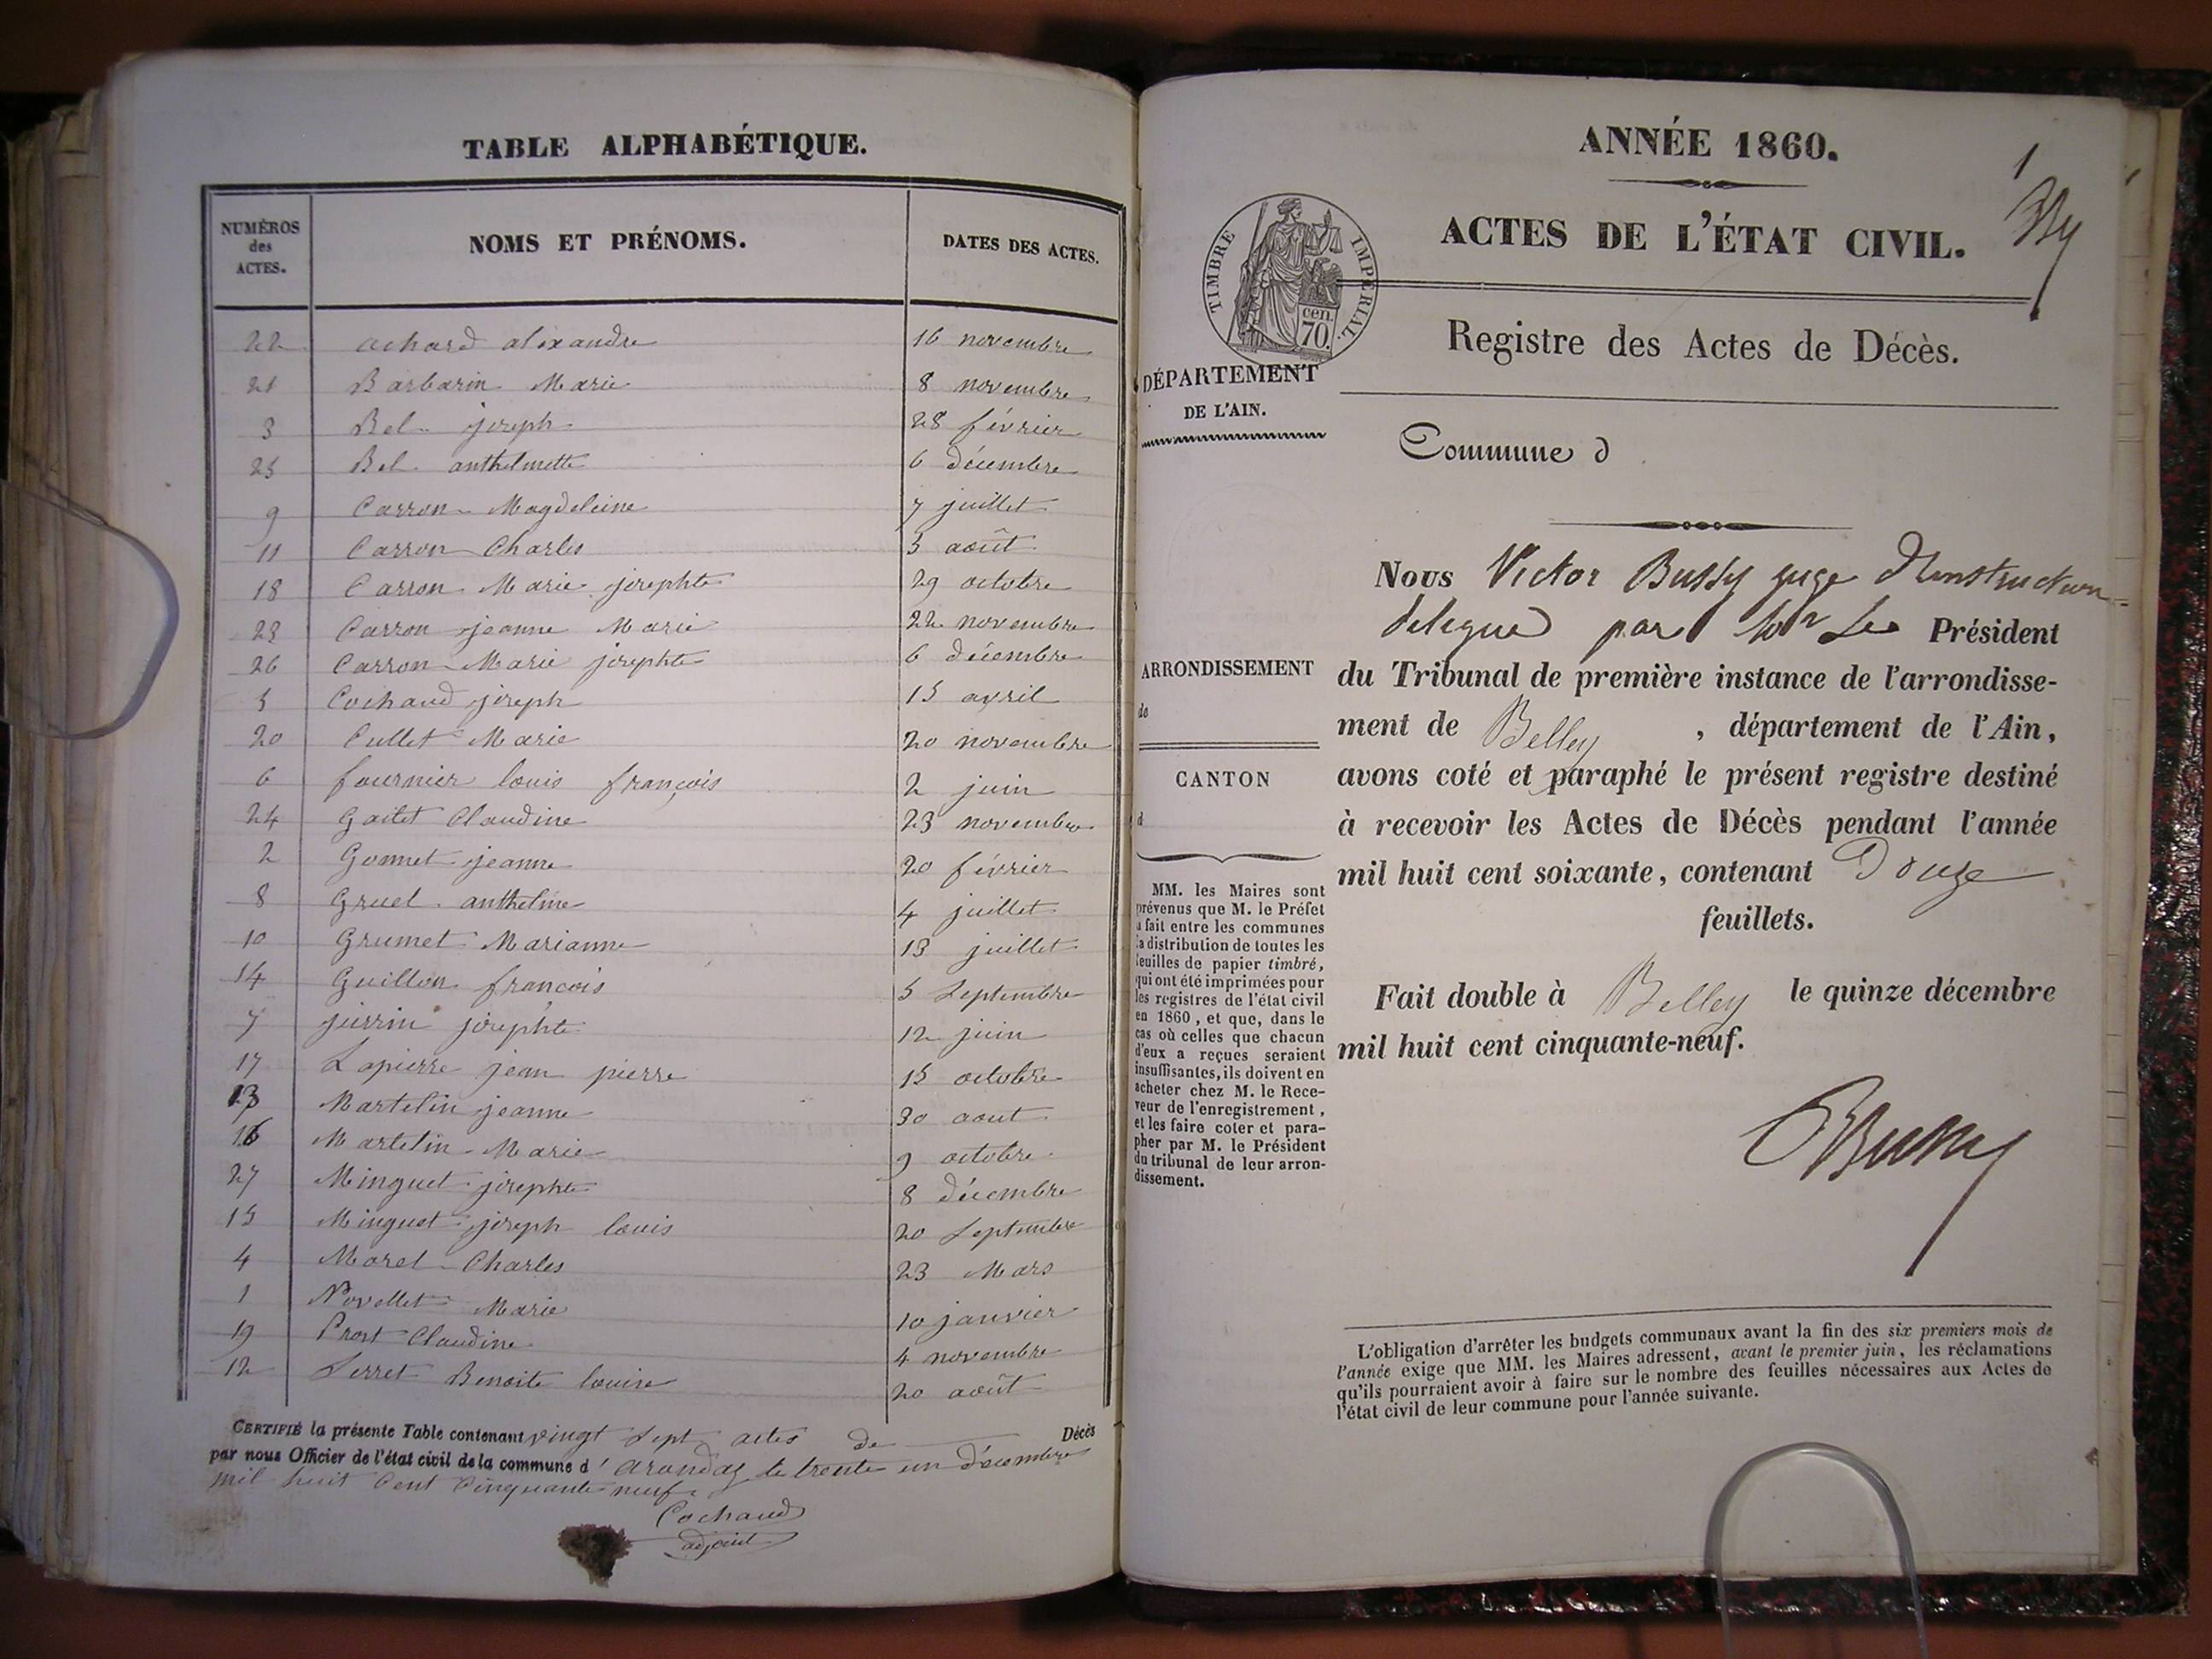 TABLE ALPHABÉTIQUE.
NUMÉROS des ACTES. NOMS ET PRÉNOMS. DATES DES ACTES.
22 achard aléxandre 16 novembre
21 Barbarin Marie 8 novembre
3 Bel joseph 28 février
25 Bel anthelmette 6 décembre
9 Carron Magdeleine 7 juillet
11 Carron Charles 5 août
18 Carron Marie josephte 29 octobre
23 Carron jeanne Marie 22 novembre
26 Carron Marie josephte 6 décembre
5 Cochaud joseph 15 avril
20 Cullet Marie 20 novembre
6 fournier louis françois 2 juin
24 Goitet Claudine 23 novembre
2 Gonnet jeanne 20 février
8 Gruel anthelme 4 juillet
10 Grumet Marianne 13 juillet
14 Guillon françois 5 Septembre
7 jussin josephte 12 juin
17 Lapierre jean pierre 15 octobre
13 Martelin jeanne 30 aout
16 Martelin Marie 9 octobre
27 Minguet josephte 8 décembre
15 Minguet joseph louis 20 Septembre
4 Morel Charles 23 Mars
1 Novellet Marie 10 janvier
19 Prost Claudine 4 novembre
12 Serret Benoite louise 20 août
CERTIFIÉ la présente Table contenant vingt Sept actes de Décès
par nous Officier de l'état civil de la commune d'arandas le trente un décembre
mil huit Cent Cinquante neuf.
Cochaud
adjoint
ANNÉE 1860.
1
ACTES DE L'ÉTAT CIVIL.
TIMBRE IMPÉRIAL.
cen. 70.
Registre des Actes de Décès.
DÉPARTEMENT
DE L'AIN.
Commune d
ARRONDISSEMENT
de
CANTON
d
MM. les Maires sont
prévenus que M. le Préfet
a fait entre les communes
la distribution de toutes les
feuilles de papier timbré,
qui ont été imprimées pour
les registres de l'état civil
en 1860, et que, dans le
cas où celles que chacun
d'eux a reçues seraient
insuffisantes, ils doivent en
acheter chez M. le Rece-
veur de l'enregistrement,
et les faire coter et para-
pher par M. le Président
du tribunal de leur arron-
dissement.
Nous Victor Bussy juge d'Instruction
délégué par Mr Le Président
du Tribunal de première instance de l'arrondisse-
ment de Belley, département de l'Ain,
avons coté et paraphé le présent registre destiné
à recevoir les Actes de Décès pendant l'année
mil huit cent soixante, contenant Douze
feuillets.
Fait double à Belley le quinze décembre
mil huit cent cinquante-neuf.
Bussy
L'obligation d'arrêter les budgets communaux avant la fin des six premiers mois de
l'année exige que MM. les Maires adressent, avant le premier juin, les réclamations
qu'ils pourraient avoir à faire sur le nombre des feuilles nécessaires aux Actes de
l'état civil de leur commune pour l'année suivante.